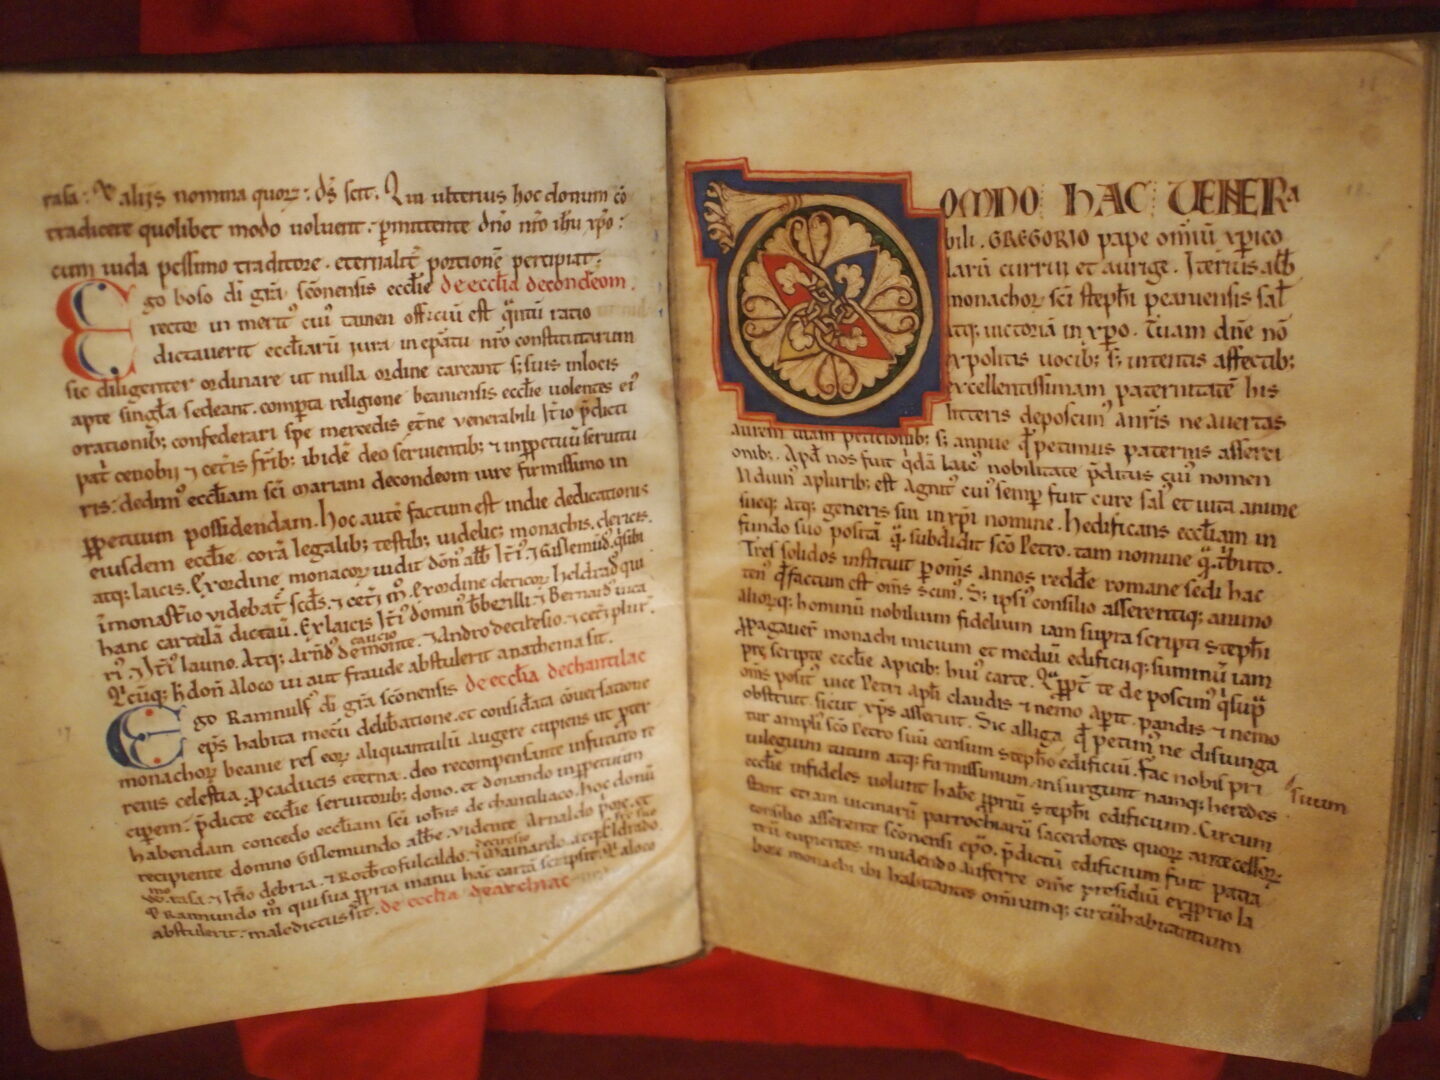 rasa: Walijs nomina quorꝝ: dſ̄ scit. Qui ulterius hoc donum cō
tradicere quolibet modo uoluerit. ꝑmittente dn̄o nr̄o ihū xp̄o:
cum iuda pessimo traditore. eternalit̄ portionē percipiat:
Ego boso dī gr̄a scōnensis ecclīe de ecclīa decondeom.
rector in merit᾿ cui᾿ tamen officiū est q̄ntū ratio
dictauerit ecclīarū iura in epātu nr̄o constitutarum
sic diligenter ordinare ut nulla ordine careant s; suis inlocis
apte singl̄a sedeant. comp̄ta religione beaniensis ecclīe uolentes ei᾿
orationib; confederari spe mercedis etn̄e uenerabili It̄io p̄dicti
pat̄ cenobii ⁊ cet̄is fr̄ib; ibidē deo seruientib; ⁊ inꝑpetuū seruitu
ris. dedim᾿ ecclīam scī mariani decondeom iure firmissimo in
ꝑpetuum possidendam. hoc autē factum est indie dedicationis
eiusdem ecclīe. corā legalib; testib; uidelic; monachis. clericis.
atq; laicis. Exordine monacoꝝ uidit don̄ abb̄ It̄i᾿ ⁊ Gislemūd᾿ q̄sibi
īmonast̄io videbat̄ scd̄s. ⁊ cet̄i m̄. Exordine clericoꝝ heldrad᾿ qui
hanc cartulā dictau̅. Ex laicis It̄i᾿ domin᾿ ꞇ̄berzilli ⁊ Bernard᾿ inca
ri᾿ ⁊ It̄i᾿ launo. Atq; arn̄d᾿ de monte. ⁊ Androdecitesio. ⁊ cet̄i plur᾿.
caucio
Q̄icūq; h̄ don̄ aloco ui aut fraude abstulerit anathema sit.
Ego Ramnulf᾿ dī gr̄a scōnensis de ecclīa dechantilac
ep̄s habita mecū delibatione. et considata cōuersatione
monachoꝝ beanie res eoꝝ aliquantulū augere cupiens ut ꝑter
renis celestia. ꝑcaducis eterna. deo recompensante infuturo re
cipem. p̄dicte ecclīe seruitorib; dono. et donando inꝑpetuum
habendam concedo ecclīam scī iohīs de chantiliaco. hoc donū
recipiente domno Gislemundo abbe. vidente Arnaldo pore. et
rasa. ⁊ It̄io debria. ⁊ Rotb̄to fulcaldo. ⁊ Mainardo. atq; Ildrado.
Raimundo m̄ qui sua ꝓpria manu hāc cartā scripsit. Q̄i aloco
abstulerit. maledictus sit. de ecclīa dearchiac
OMNO HAC VENERA
bili. GREGORIO pape omiū xp̄ico
larū currui et aurige. Iterius abb̄
monachoꝝ scī steph̄i beaniensis sal̄
atq; uictoriā in xp̄o. Tuam dn̄e nō
expolitis uocib; s; intentis affectib;
excellentissimam paternitatē his
litteris deposcim᾿ an̄ris ne auertas
aurem tuam petitionib; s; annue q̄ petimus paternis asserti
onib;. Apđ nos fuit q̄dā laic᾿ nobilitate p̄ditus cui᾿ nomen
Ilduin᾿ apluribˀ est agnit᾿ cui᾿ semꝑ fuit cure sal᾿ et uita anime
sueq; atq; generis sui in xp̄i nomine. hedificans ecclīam in
fundo suo positā q̄ subdidit scō Petro. tam nomine q̄ t̄buto.
Tres solidos instituit ꝑ om̄s annos reddē romane sedi hac
ten᾿ q̄ factum est om̄s scim᾿. S; ipsi᾿ consilio asserentiq; animo
aliorūq; hominū nobilium fidelium iam supra scripti stephi
ꝓpagauer̄ monachi inicium et mediū edificiiq; summū iam
pre scripte ecclīe apicib; hui᾿ carte. te de poscim᾿ q̄
om̄s posit᾿ uice Petri apl̄i claudis ⁊ nemo aꝑit. pandis ⁊ nemo
obstruit sicut xp̄s asseruit. Sic alliga q̄ petim᾿ ne disiunga
tur ampli᾿ scō Petro suū censum stepho edificiū. fac nobis pri
uilegium tutum atq; firmissimum. insurgunt namq; heredes
suum
ecclīe infideles uolunt hab̄e ꝓpriū stephi edificium. Circum
stant etiam uicinarū parrochiarū sacerdotes quoꝝ antecessoꝝ
consilio asserente scōnensi ep̄o. p̄dictū edificium fuit patra
tū cupientes inuidendo auferre om̄e presidiū exprio la
bore monachi ibi habitantes omiumq; circūhabitantium